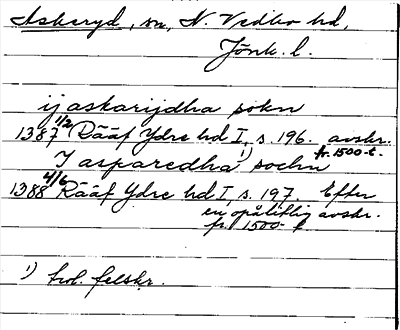 Askeryd, sn, N. Vedbo hd,
Jönk. l.
ij askarijdha sokn
1387 1/2 Rääf Ydre hd I, s. 196. avskr.
fr. 1500-t.
J asparedha 1) sochn
1388 4/6 Rääf Ydre hd I, s. 197. Efter
en opålitlig avskr.
fr. 1500-t
1) trol. felskr.